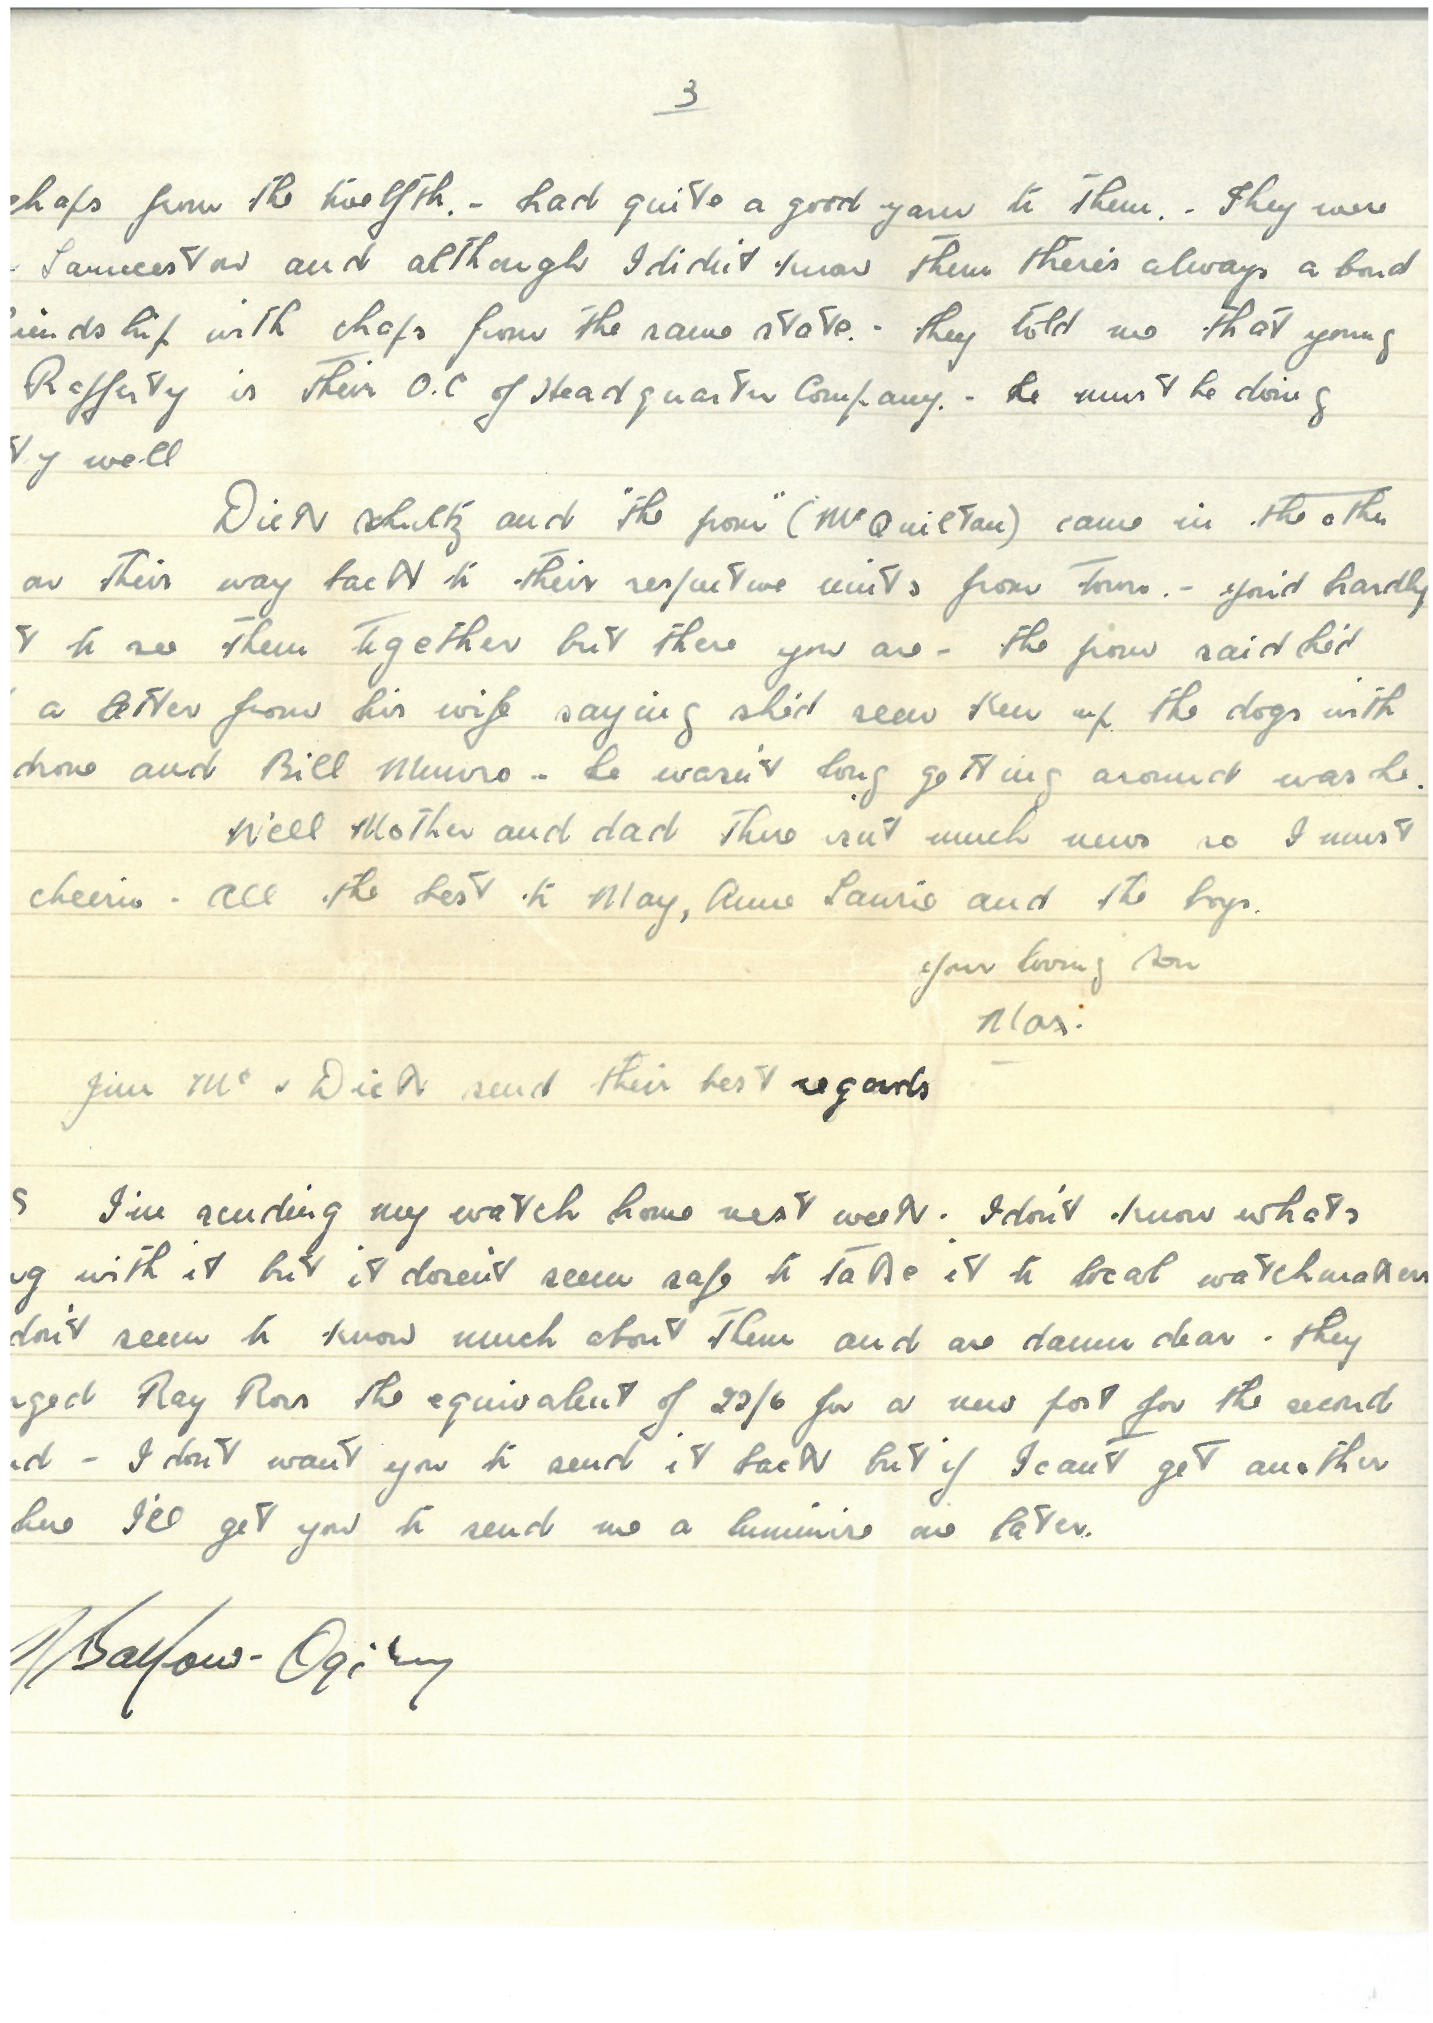 3
chaps from the twelfth. - had quite a good yarn to them. - They were
- Launceston and although I didn't know them there's always a bond
iendship with chaps from the same state. - they told me that young
Rafferty is their O.C of Headquarter Company. - he must be doing
ty well
Dick Shultz and "the pom" (McQuiltan) came in the other
on their way back to their respective units from town. - you'd hardly
t to see them together but there you are - the pom said he'd
a letter from his wife saying she'd seen Ken up the dogs with
and Bill Munro - he wasn't long getting around was he.
Well Mother and dad there isn't much news so I must
cheerio - all the best to May, Anne Laurie and the boys.
your loving son
Max.
Jim Mc & Dick send their best regards
S I'm sending my watch home next week. I don't know whats
ng with it but it dosen't seem safe to take it to local watchmakers
don't seem to know much about them and are damn dear. they
rged Ray Ross the equivalent of 22/6 for a new post for the second
nd - I don't want you to send it back but if I can't get another
here I'll get you to send me a luminise one later.
Balfour-Ogilvy